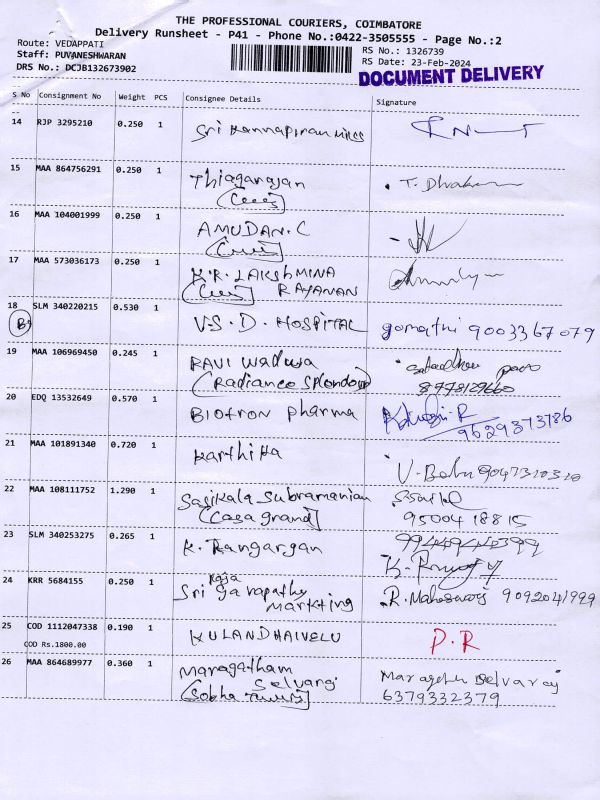 THE PROFESSIONAL COURIERS, COIMBATORE
Delivery Runsheet - P41 - Phone No.:0422-3505555 - Page No.:2
Route: VEDAPPATI
Staff: PUVANESHWARAN
DRS No.: DCJB132673902
RS No.: 1326739
RS Date: 23-Feb-2024
DOCUMENT DELIVERY
S No Consignment No Weight PCS Consignee Details Signature
14 RJP 3295210 0.250 1 Sri Kannapiran Mills
15 MAA 864756291 0.250 1 Thiagarajan T. Dhva
16 MAA 104001999 0.250 1 AMUDAN.C
17 MAA 573036173 0.250 1 K.R. LAKSHMINA
RAYANAN
18 SLM 340220215 0.530 1 V.S.D. HOSPITAL gomathi 9003367079
19 MAA 106969450 0.245 1 RAVI Wadwa
(Radiance Splendour) 8778129660
20 EDQ 13532649 0.570 1 BIOTRON pharma
9629373786
21 MAA 101891340 0.720 1 Karthika V. Babu 9047310310
22 MAA 108111752 1.290 1 Sasikala Subramanian
(Casa grand) 9500418815
23 SLM 340253275 0.265 1 K. Rangargan 99449440399
24 KRR 5684155 0.250 1 Sri Raja Ganapathy
Markting R. Maheswari 9092041999
25 COD 1112047338 0.190 1 KULANDHAIVELU P.R
COD Rs.1800.00
26 MAA 864689977 0.360 1 Maragatham
Selvaraj Maragatham Selvaraj
(Sobha Towers) 6379332379